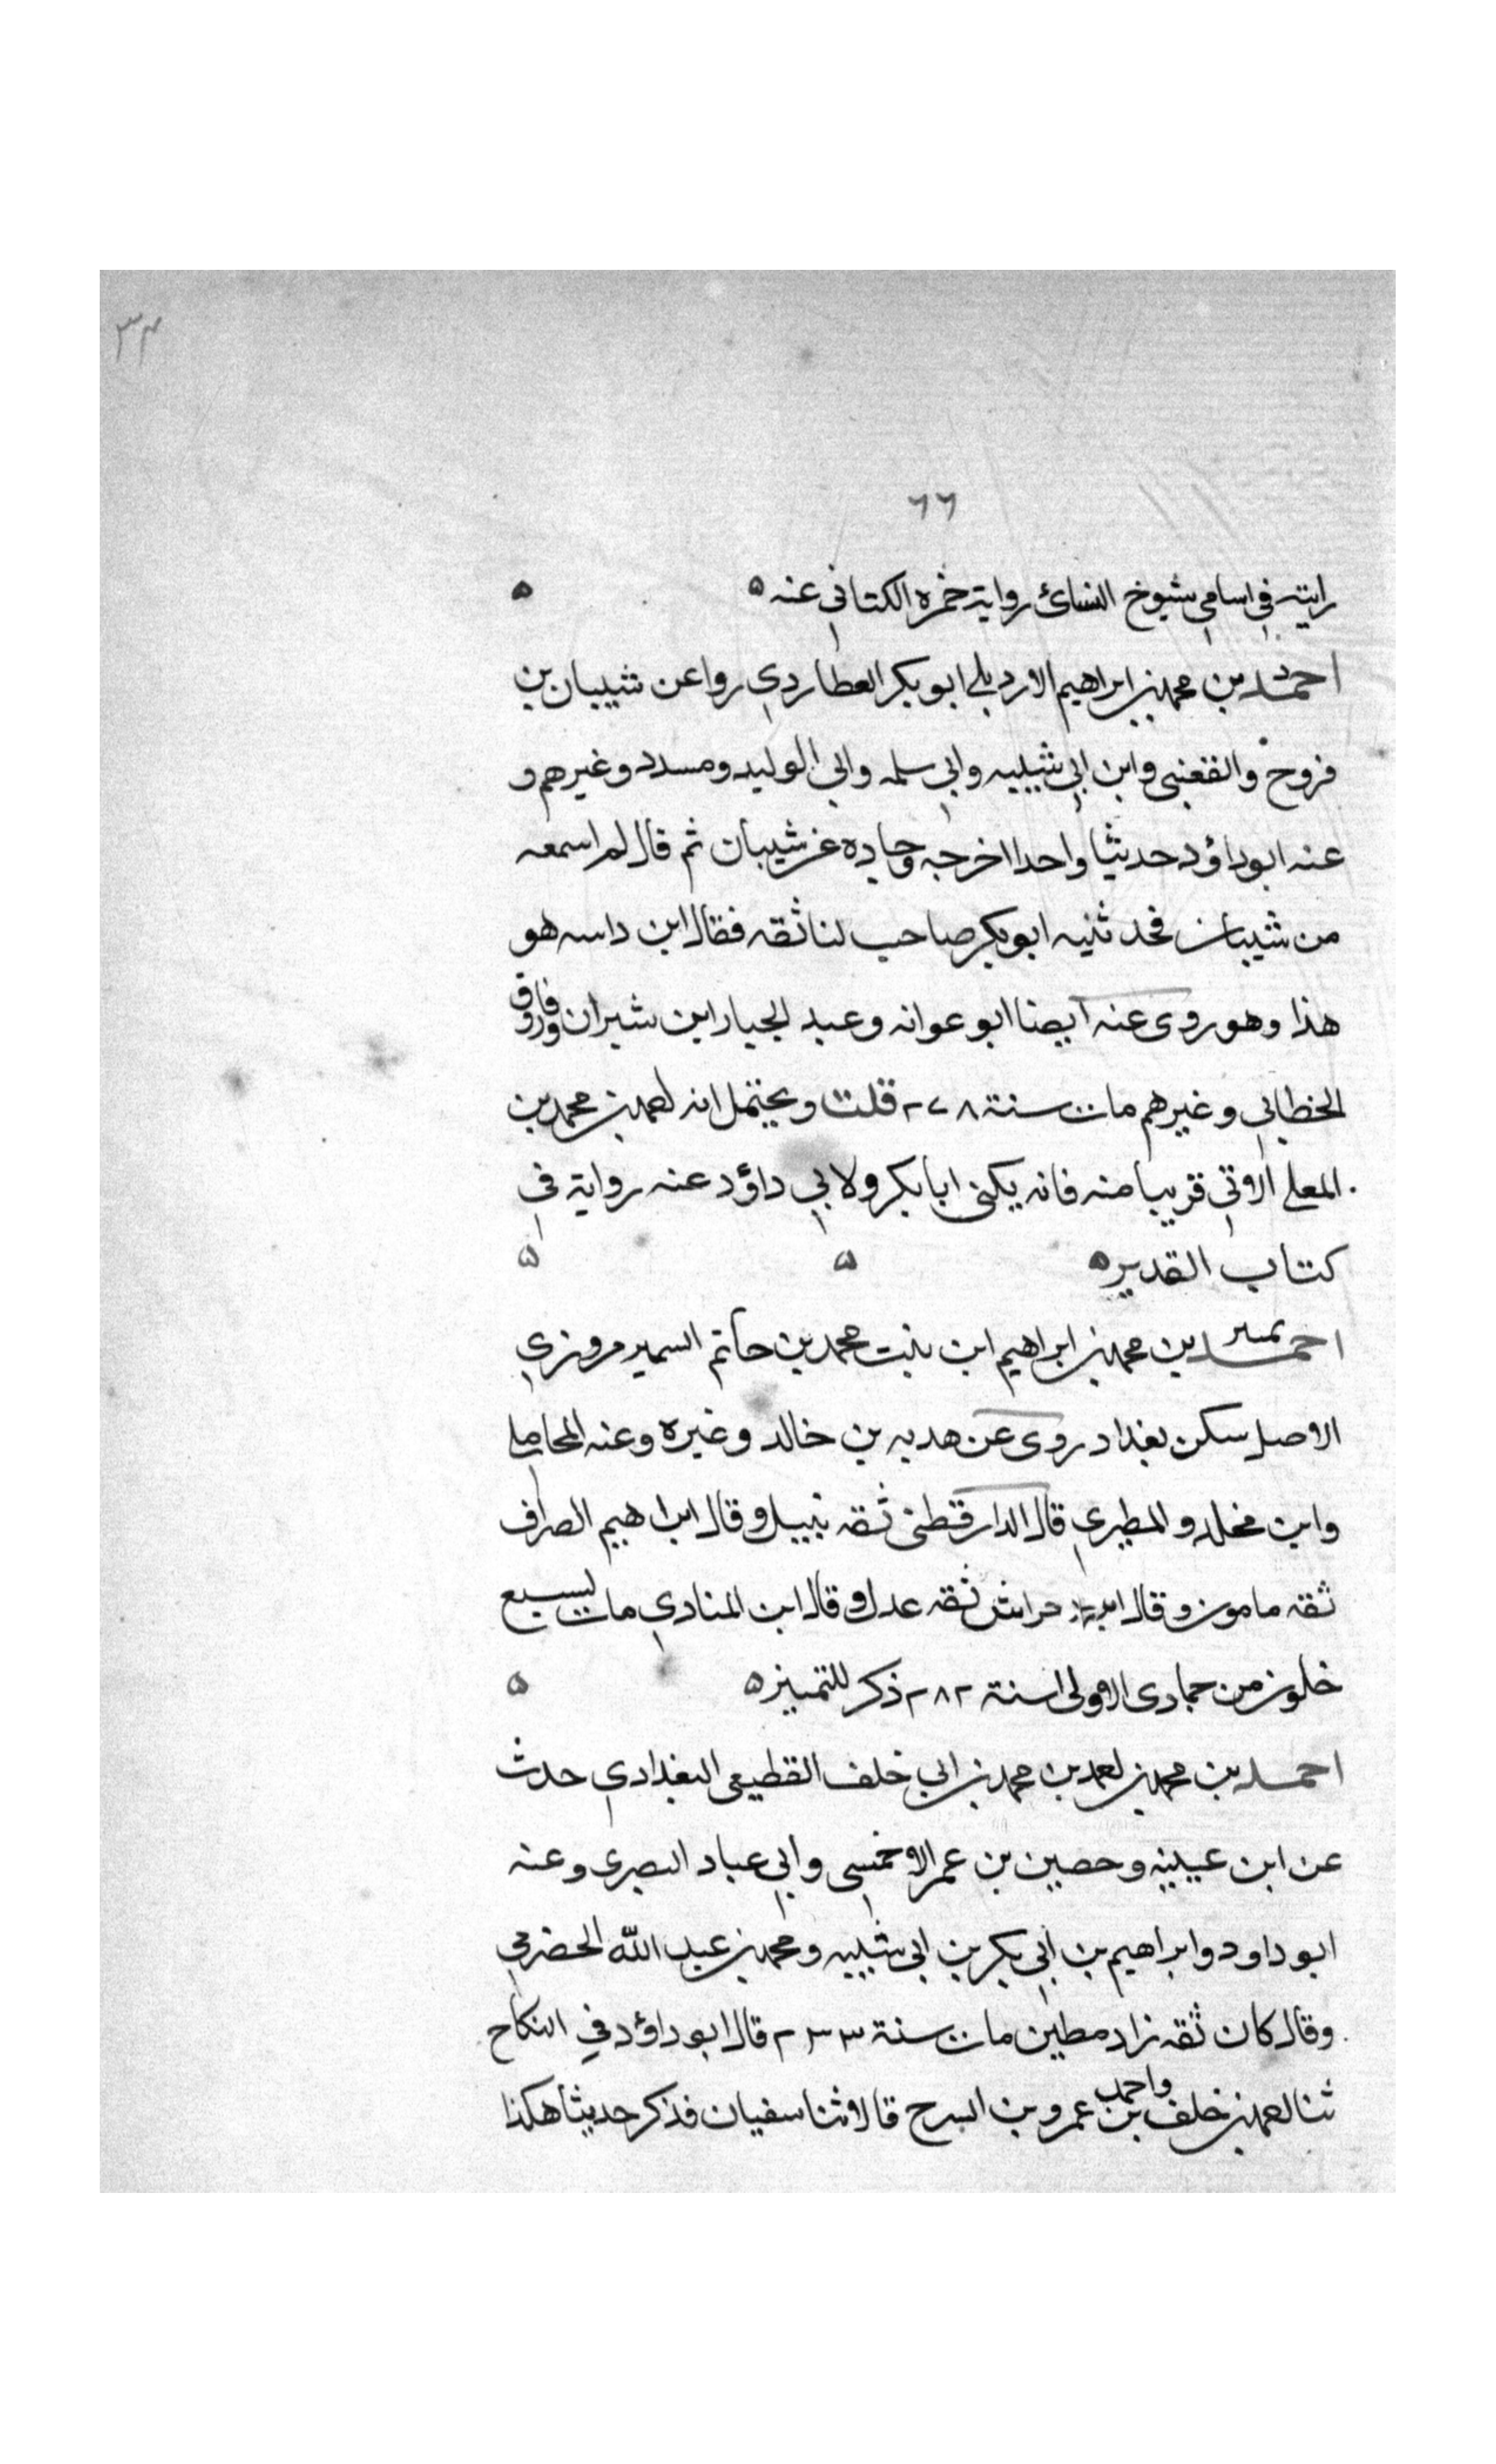 ٣٣
٦٦
رايته في اسامي شيوخ النسائ رواية حمزه الكتاني عنه ه ه
احمد بن محمد بن ابراهيم الاردبلي ابو بكر العطاردي روا عن شيبان بن
فروخ والقعنبى وابن ابي شيبه وابي سلمه وابي الوليد ومسدد وغيرهم و
عنه ابوداؤد حديثا واحدا اخرجه وجاده عن شيبان ثم قال لم اسمعه
من شيبان فحدثنيه ابوبكر صاحب لنا ثقه فقال ابن داسه هو
هذا وهو روى عنه ايضا ابو عوانه وعبد الجبار ابن شيران وفاروق
الخطابي وغيرهم مات سنة ٢٧٨ قلت ويحتمل انه احمد بن محمد بن
المعلى الاتي قريبا منه فانه يكنى ابا بكر ولابي داؤد عنه رواية في
كتاب القدير ه ه ه
احمد بن محمد بن ابراهيم ابن بنت محمد بن حاتم السمير مروزي
الاصل سكن بغداد روى عن هدبه بن خالد وغيره وعنه المحاملي
وابن مخلد والمطيري قال الدارقطنى ثقه نبيل وقال ابراهيم الصراف
ثقه مامون وقال ابن خراش ثقه عدل وقال ابن المنادي مات لسبع
خلون من جمادى الاولى سنة ٢٨٢ ذكر للتمييز ه ه
احمد بن محمد بن احمد بن محمد بن ابي خلف القطيعى البغدادي حدث
عن ابن عيينه وحصين بن عمر الاحمسى وابي عباد البصرى وعنه
ابو داود وابراهيم بن ابي بكر بن ابي شيبه ومحمد بن عبد الله الحضرمي
وقال كان ثقه زاد مطين مات سنة ٢٣٣ قال ابو داؤد في النكاح
ثنا احمد بن خلف واحمد بن عمرو بن السرح قالا ثنا سفيان فذكر حديثا هكذا